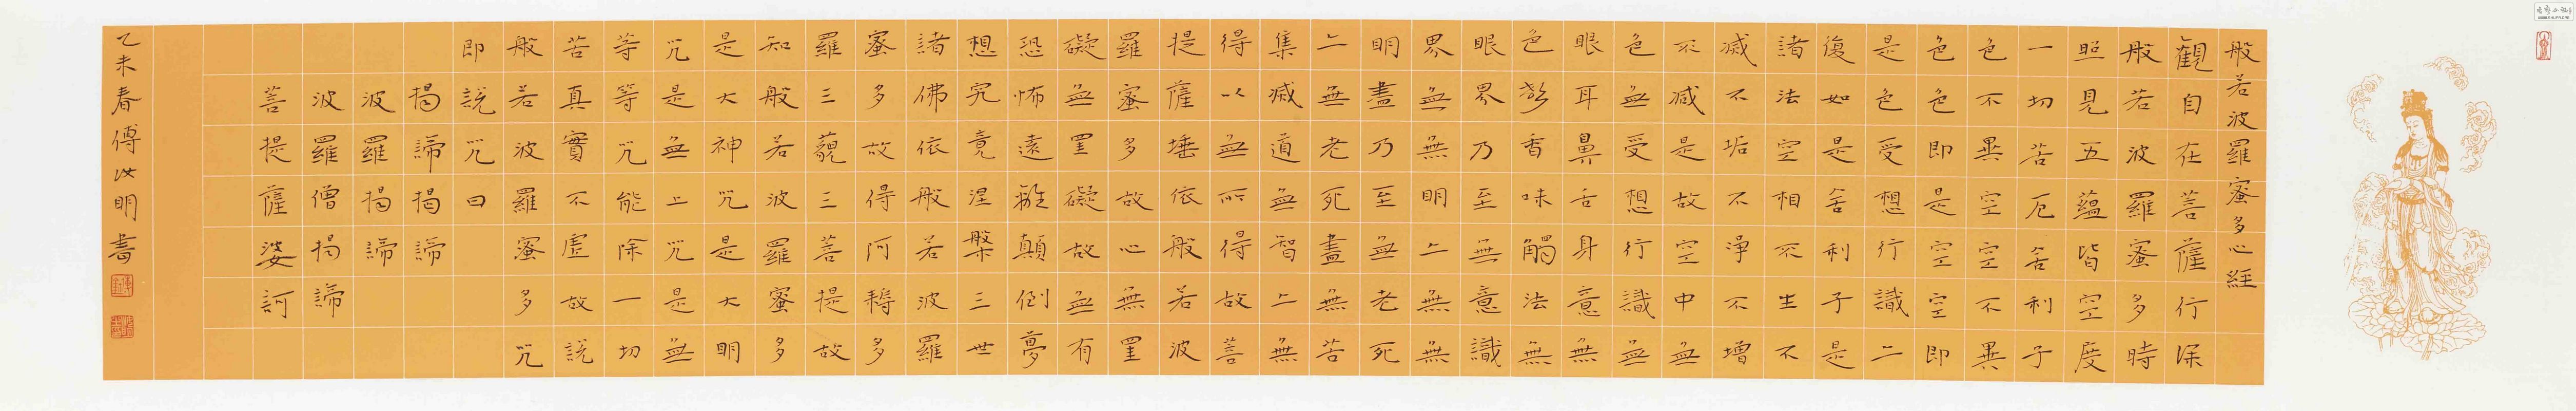 般若波羅蜜多心經
觀自在菩薩行深
般若波羅蜜多時
照見五蘊皆空度
一切苦厄舍利子
色不異空空不異
色色即是空空即
是色受想行識亦
復如是舍利子是
諸法空相不生不
滅不垢不淨不增
不減是故空中無
色無受想行識無
眼耳鼻舌身意無
色聲香味觸法無
眼界乃至無意識
界無無明亦無無
明盡乃至無老死
亦無老死盡無苦
集滅道無智亦無
得以無所得故菩
提薩埵依般若波
羅蜜多故心無罣
礙無罣礙故無有
恐怖遠離顛倒夢
想究竟涅槃三世
諸佛依般若波羅
蜜多故得阿耨多
羅三藐三菩提故
知般若波羅蜜多
是大神咒是大明
咒是無上咒是無
等等咒能除一切
苦真實不虛故說
般若波羅蜜多咒
即說咒曰
揭諦揭諦
波羅揭諦
波羅僧揭諦
菩提薩婆訶
乙未春傅汝明書